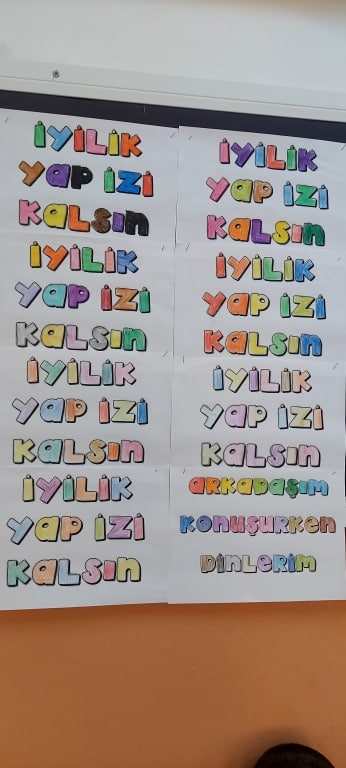 iyilik
yap izi
kalsın
iyilik
yap izi
kalsın
iyilik
yap izi
kalsın
iyilik
yap izi
kalsın
iyilik
yap izi
kalsın
iyilik
yap izi
kalsın
iyilik
yap izi
kalsın
arkadaşım
konuşurken
dinlerim